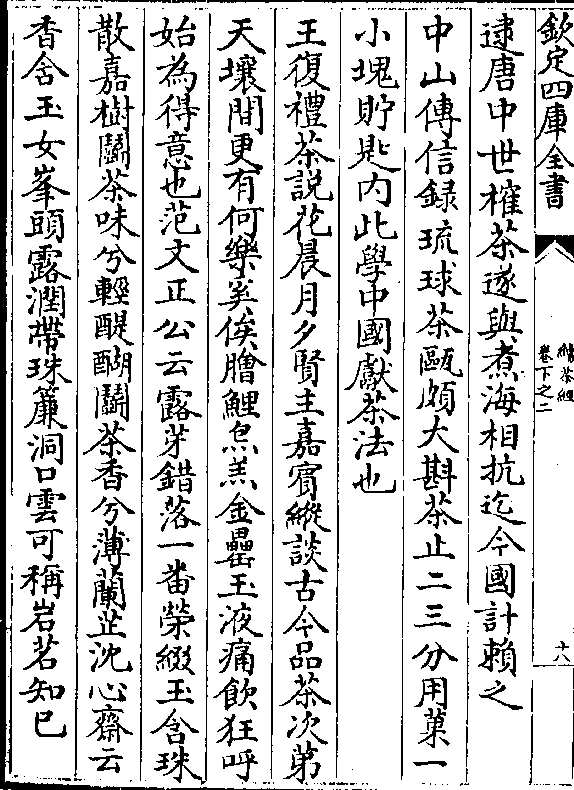 欽定四庫全書
續茶經
卷下之二
十八
逮唐中世榷茶遂與煮海相抗迄今國計賴之
中山傳信録琉球茶甌頗大斟茶止二三分用菓一
小塊貯匙内此學中國獻茶法也
王復禮茶説花晨月夕賢主嘉賓縱談古今品茶次第
天壤間更有何樂奚俟膾鯉炰羔金罍玉液痛飲狂呼
始為得意也范文正公云露芽錯落一番榮綴玉含珠
散嘉樹鬭茶味兮輕醍醐鬭茶香兮薄蘭芷沈心齋云
香含玉女峯頭露潤帶珠簾洞口雲可稱岩茗知已